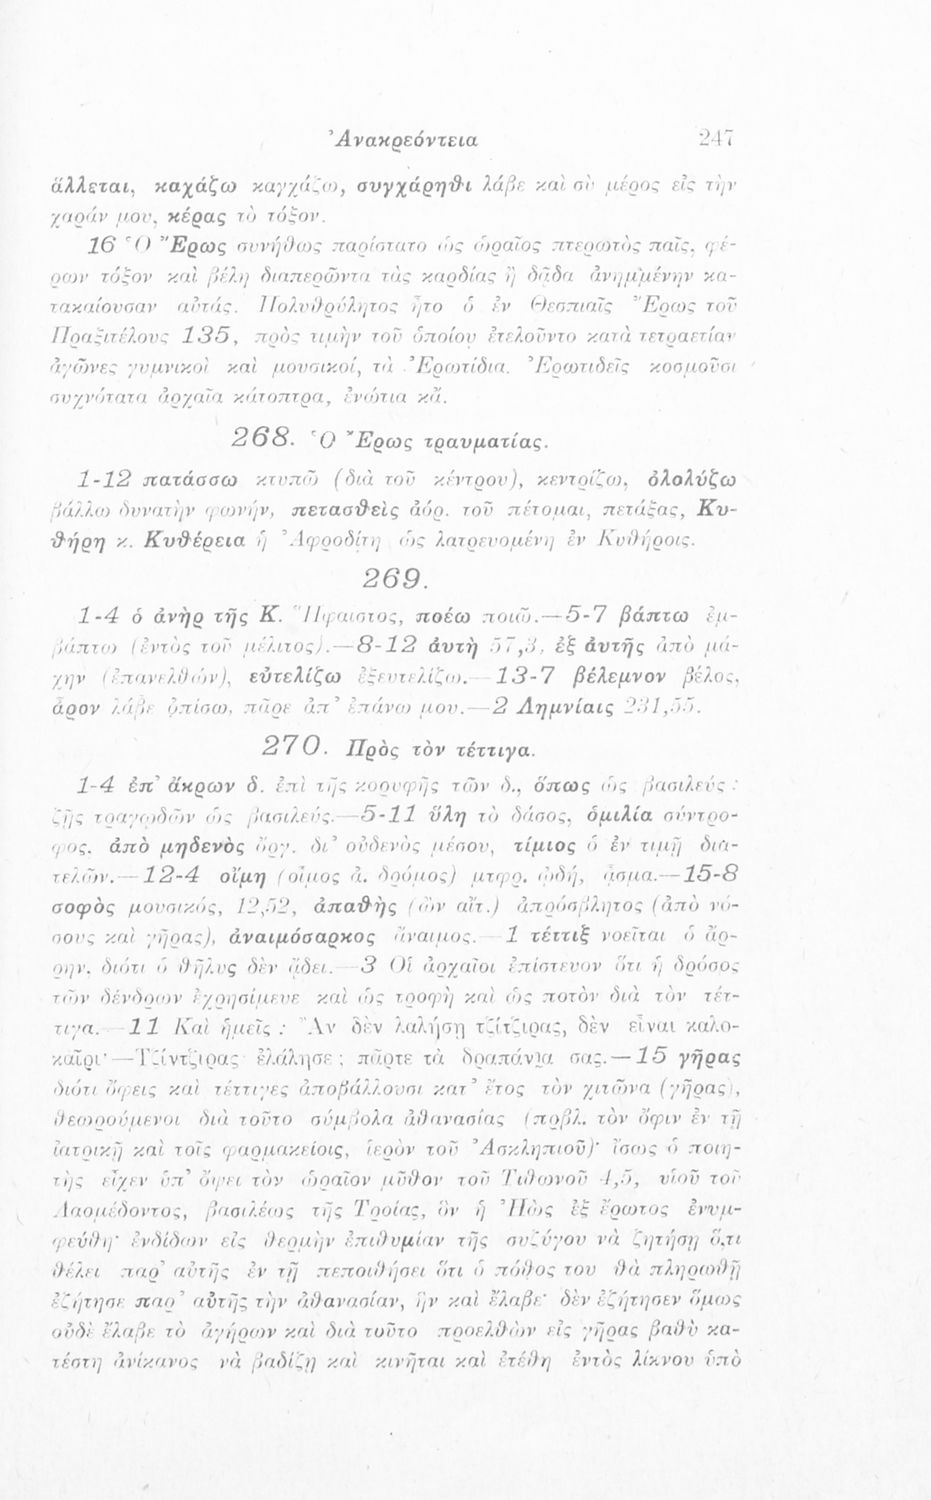 Ἀνακρεόντεια 247
ἅλλεται, καχάζω καγχάζω, συγχάρηθι λάβε καὶ σὺ μέρος εἰς τὴν
χαράν μου, κέρας τὸ τόξον.
16 Ὁ Ἔρως συνήθως παρίστατο ὡς ὡραῖος πτερωτὸς παῖς, φέ-
ρων τόξον καὶ βέλη διαπερῶντα τὰς καρδίας ἢ δᾷδα ἀνημμένην κα-
τακαίουσαν αὐτάς. Πολυθρύλητος ἦτο ὁ ἐν Θεσπιαῖς Ἔρως τοῦ
Πραξιτέλους 135, πρὸς τιμὴν τοῦ ὁποίου ἐτελοῦντο κατὰ τετραετίαν
ἀγῶνες γυμνικοὶ καὶ μουσικοί, τὰ Ἐρωτίδια. Ἐρωτιδεῖς κοσμοῦσι
συχνότατα ἀρχαῖα κάτοπτρα, ἐνώτια κἄ.
268. Ὁ Ἔρως τραυματίας.
1-12 πατάσσω κτυπῶ (διὰ τοῦ κέντρου), κεντρίζω, ὀλολύζω
βάλλω δυνατὴν φωνήν, πετασθεὶς ἀόρ. τοῦ πέτομαι, πετάξας, Κυ-
θήρη κ. Κυθέρεια ἡ Ἀφροδίτη ὡς λατρευομένη ἐν Κυθήροις.
269.
1-4 ὁ ἀνὴρ τῆς Κ. Ἥφαιστος, ποέω ποιῶ.—5-7 βάπτω ἐμ-
βάπτω (ἐντὸς τοῦ μέλιτος).—8-12 ἀυτὴ 57,3, ἐξ ἀυτῆς ἀπὸ μά-
χην (ἐπανελθών), εὐτελίζω ἐξευτελίζω.—13-7 βέλεμνον βέλος,
ἆρον λάβε ὀπίσω, πᾶρε ἀπ᾽ ἐπάνω μου.—2 Λημνίαις 231,55.
270. Πρὸς τὸν τέττιγα.
1-4 ἐπ᾽ ἄκρων δ. ἐπὶ τῆς κορυφῆς τῶν δ., ὅπως ὡς βασιλεύς :
ζῇς τραγῳδῶν ὡς βασιλεύς.—5-11 ὕλη τὸ δάσος, ὁμιλία σύντρο-
φος, ἀπὸ μηδενὸς ὄργ. δι᾽ οὐδενὸς μέσου, τίμιος ὁ ἐν τιμῇ δια-
τελῶν.—12-4 οἴμη (οἶμος ἁ. δρόμος) μτφρ. ᾠδή, ᾆσμα.—15-8
σοφὸς μουσικός, 12,52, ἀπαθὴς (ὢν αἰτ.) ἀπρόσβλητος (ἀπὸ νό-
σους καὶ γῆρας), ἀναιμόσαρκος ἄναιμος.—1 τέττιξ νοεῖται ὁ ἄρ-
ρην, διότι ὁ θῆλυς δὲν ᾄδει.—3 Οἱ ἀρχαῖοι ἐπίστευον ὅτι ἡ δρόσος
τῶν δένδρων ἐχρησίμευε καὶ ὡς τροφὴ καὶ ὡς ποτὸν διὰ τὸν τέτ-
τιγα.—11 Καὶ ἡμεῖς : Ἂν δὲν λαλήσῃ τζίτζιρας, δὲν εἶναι καλο-
καῖρι·—Τζίντζιρας ἐλάλησε ; πᾶρτε τὰ δραπάνια σας.—15 γῆρας
διότι ὄφεις καὶ τέττιγες ἀποβάλλουσι κατ᾽ ἔτος τὸν χιτῶνα (γῆρας),
θεωρούμενοι διὰ τοῦτο σύμβολα ἀθανασίας (πρβλ. τὸν ὄφιν ἐν τῇ
ἰατρικῇ καὶ τοῖς φαρμακείοις, ἱερὸν τοῦ Ἀσκληπιοῦ)· ἴσως ὁ ποιη-
τὴς εἶχεν ὑπ᾽ ὄψει τὸν ὡραῖον μῦθον τοῦ Τιθωνοῦ 4,5, υἱοῦ τοῦ
Λαομέδοντος, βασιλέως τῆς Τροίας, ὃν ἡ Ἠὼς ἐξ ἔρωτος ἐνυμ-
φεύθη· ἐνδίδων εἰς θερμὴν ἐπιθυμίαν τῆς συζύγου νὰ ζητήσῃ ὅ,τι
θέλει παρ᾽ αὐτῆς ἐν τῇ πεποιθήσει ὅτι ὁ πόθος του θὰ πληρωθῇ
ἐζήτησε παρ᾽ αὐτῆς τὴν ἀθανασίαν, ἣν καὶ ἔλαβε· δὲν ἐζήτησεν ὅμως
οὐδὲ ἔλαβε τὸ ἀγήρων καὶ διὰ τοῦτο προελθὼν εἰς γῆρας βαθὺ κα-
τέστη ἀνίκανος νὰ βαδίζῃ καὶ κινῆται καὶ ἐτέθη ἐντὸς λίκνου ὑπὸ